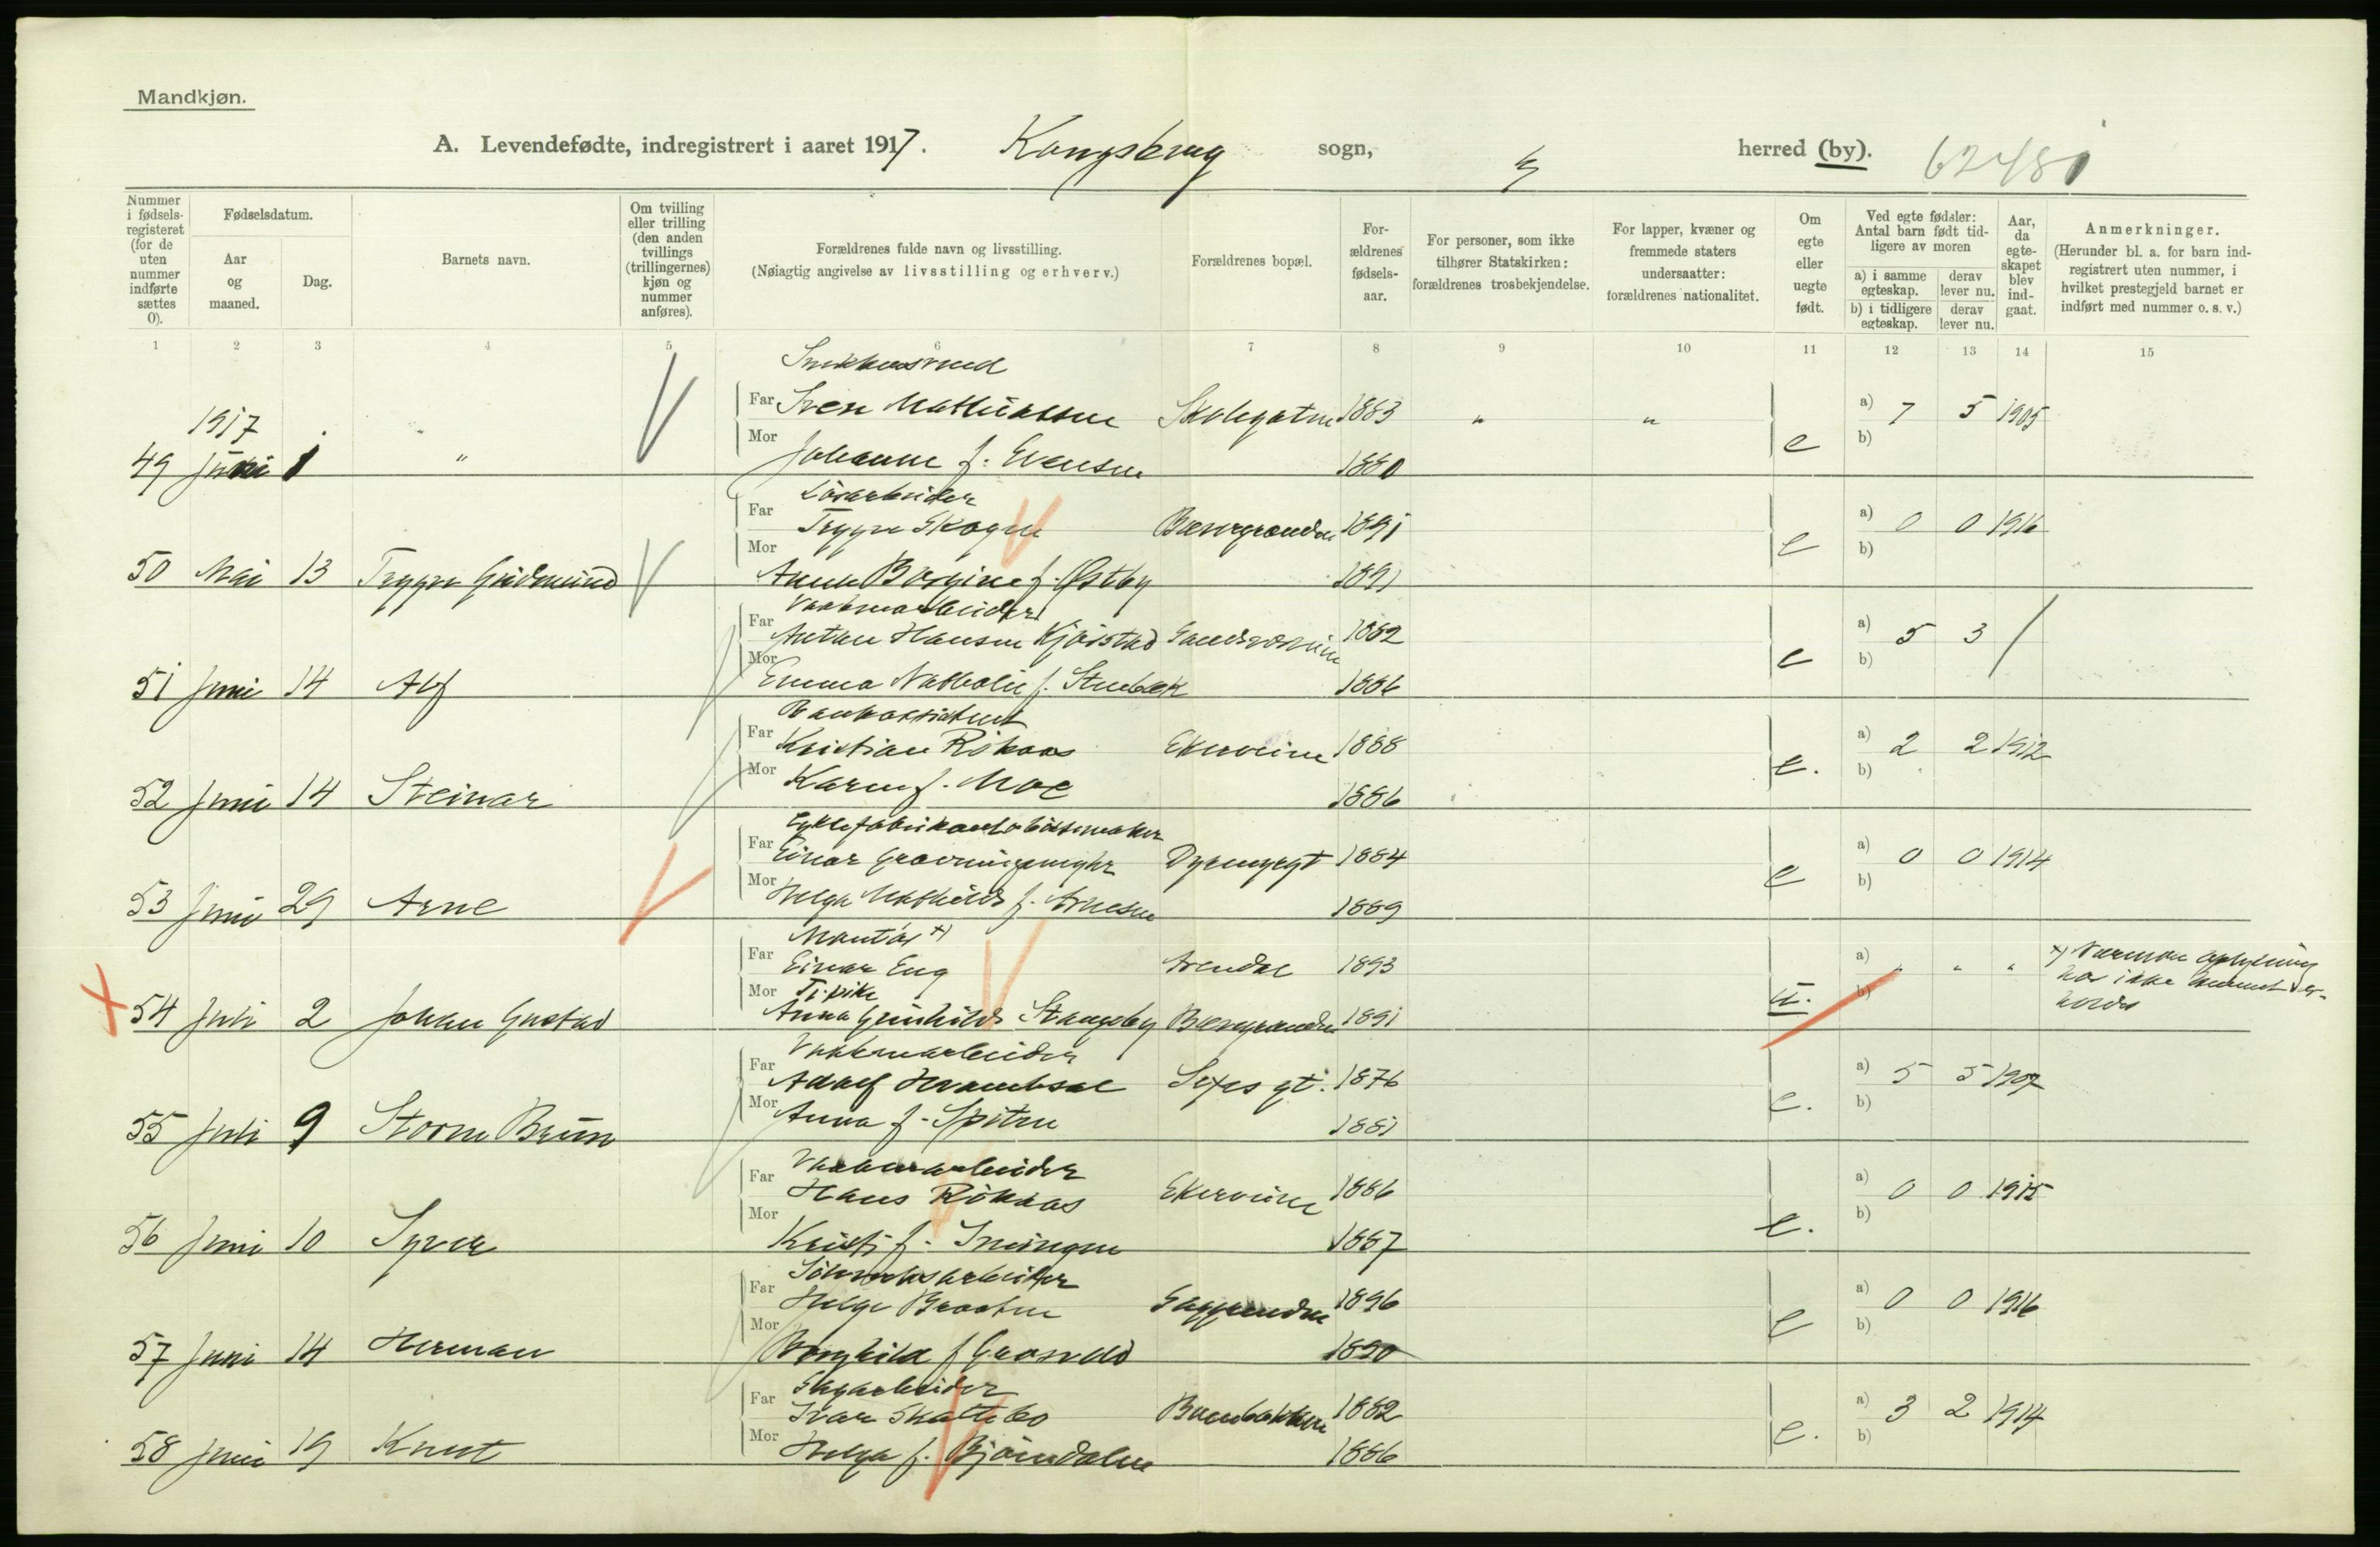 Mandkjøn.
A. Levendefødte, indregistrert i aaret 1917. Kongsberg sogn, herred (by). 6248
Nummer i fødselsregisteret (for de uten nummer indførte sættes 0).
Fødselsdatum.
Aar og maaned.
Dag.
Barnets navn.
Om tvilling eller trilling (den anden tvillings (trillingernes) kjøn og nummer anføres).
Forældrenes fulde navn og livsstilling.
(Nøiagtig angivelse av livsstilling og erhverv.)
Forældrenes bopæl.
Forældrenes fødselsaar.
For personer, som ikke tilhører Statskirken: forældrenes trosbekjendelse.
For lapper, kvæner og fremmede staters undersaatter: forældrenes nationalitet.
Om egte eller uegte født.
Ved egte fødsler: Antal barn født tidligere av moren
a) i samme egteskap.
derav lever nu.
b) i tidligere egteskap.
derav lever nu.
Aar, da egteskapet blev indgaat.
Anmerkninger.
(Herunder bl. a. for barn indregistrert uten nummer, i hvilket prestegjeld barnet er indført med nummer o. s. v.)
1 2 3 4 5 6 7 8 9 10 11 12 13 14 15
1917
Far Iver Mathiassen Skolegaten 1883 " " a) 7 5 1905
49 Juni 1 " Mor Johanne f. Evensen 1880 e b)
Løsarbeider
Far Trygve Skogen 1891 a) 0 0 1916
50 Mai 13 Trygve Gudmund Mor Anna Borgine f. Østby 1891 e b)
Vaabenarbeider
Far Anton Hansen Kjørstad 1882 a) 5 3 /
51 Juni 14 Alf Mor Emma Nathalie f. Stubæk 1886 e b)
Bankassistent
Far Kristian Rökaas Ekerveien 1888 a) 2 2 1912
52 Juni 14 Steinar Mor Karen f. Moe 1886 e. b)
Cyklefabrikant & bøssemaker
Far Einar Dyrmyrgt 1884 a) 0 0 1914
53 Juni 29 Arne Mor Helga Mathilde f. Arnesen 1889 e b)
Montør x)
Far Einar Eng Arendal 1893 a) " " " x) Nærmere oplysning har ikke kunnet erholdes
Mor Tj.pike
54 Juli 2 Johan Gustav Anna Gunhild Stangeby 1891 u. b)
Vaabenarbeider
Far Adolf 1876 a) 5 5 1907
55 Juli 9 Storm Brun Mor Anna f. Spiten 1881 e. b)
Vaabenarbeider
Far Hans Rökaas Ekerveien 1886 a) 0 0 1915
56 Juni 10 Syver Mor Kristi f. 1887 e. b)
Sölvverksarbeider
Far Helge Braaten 1896 a) 0 0 1916
57 Juni 14 Herman Mor Borghild f 1890 e b)
Sagarbeider
Far Ivar Skattebo 1882 a) 3 2 1914
58 Juni 19 Knut Mor Helga f. Bjørndalen 1886 e. b)